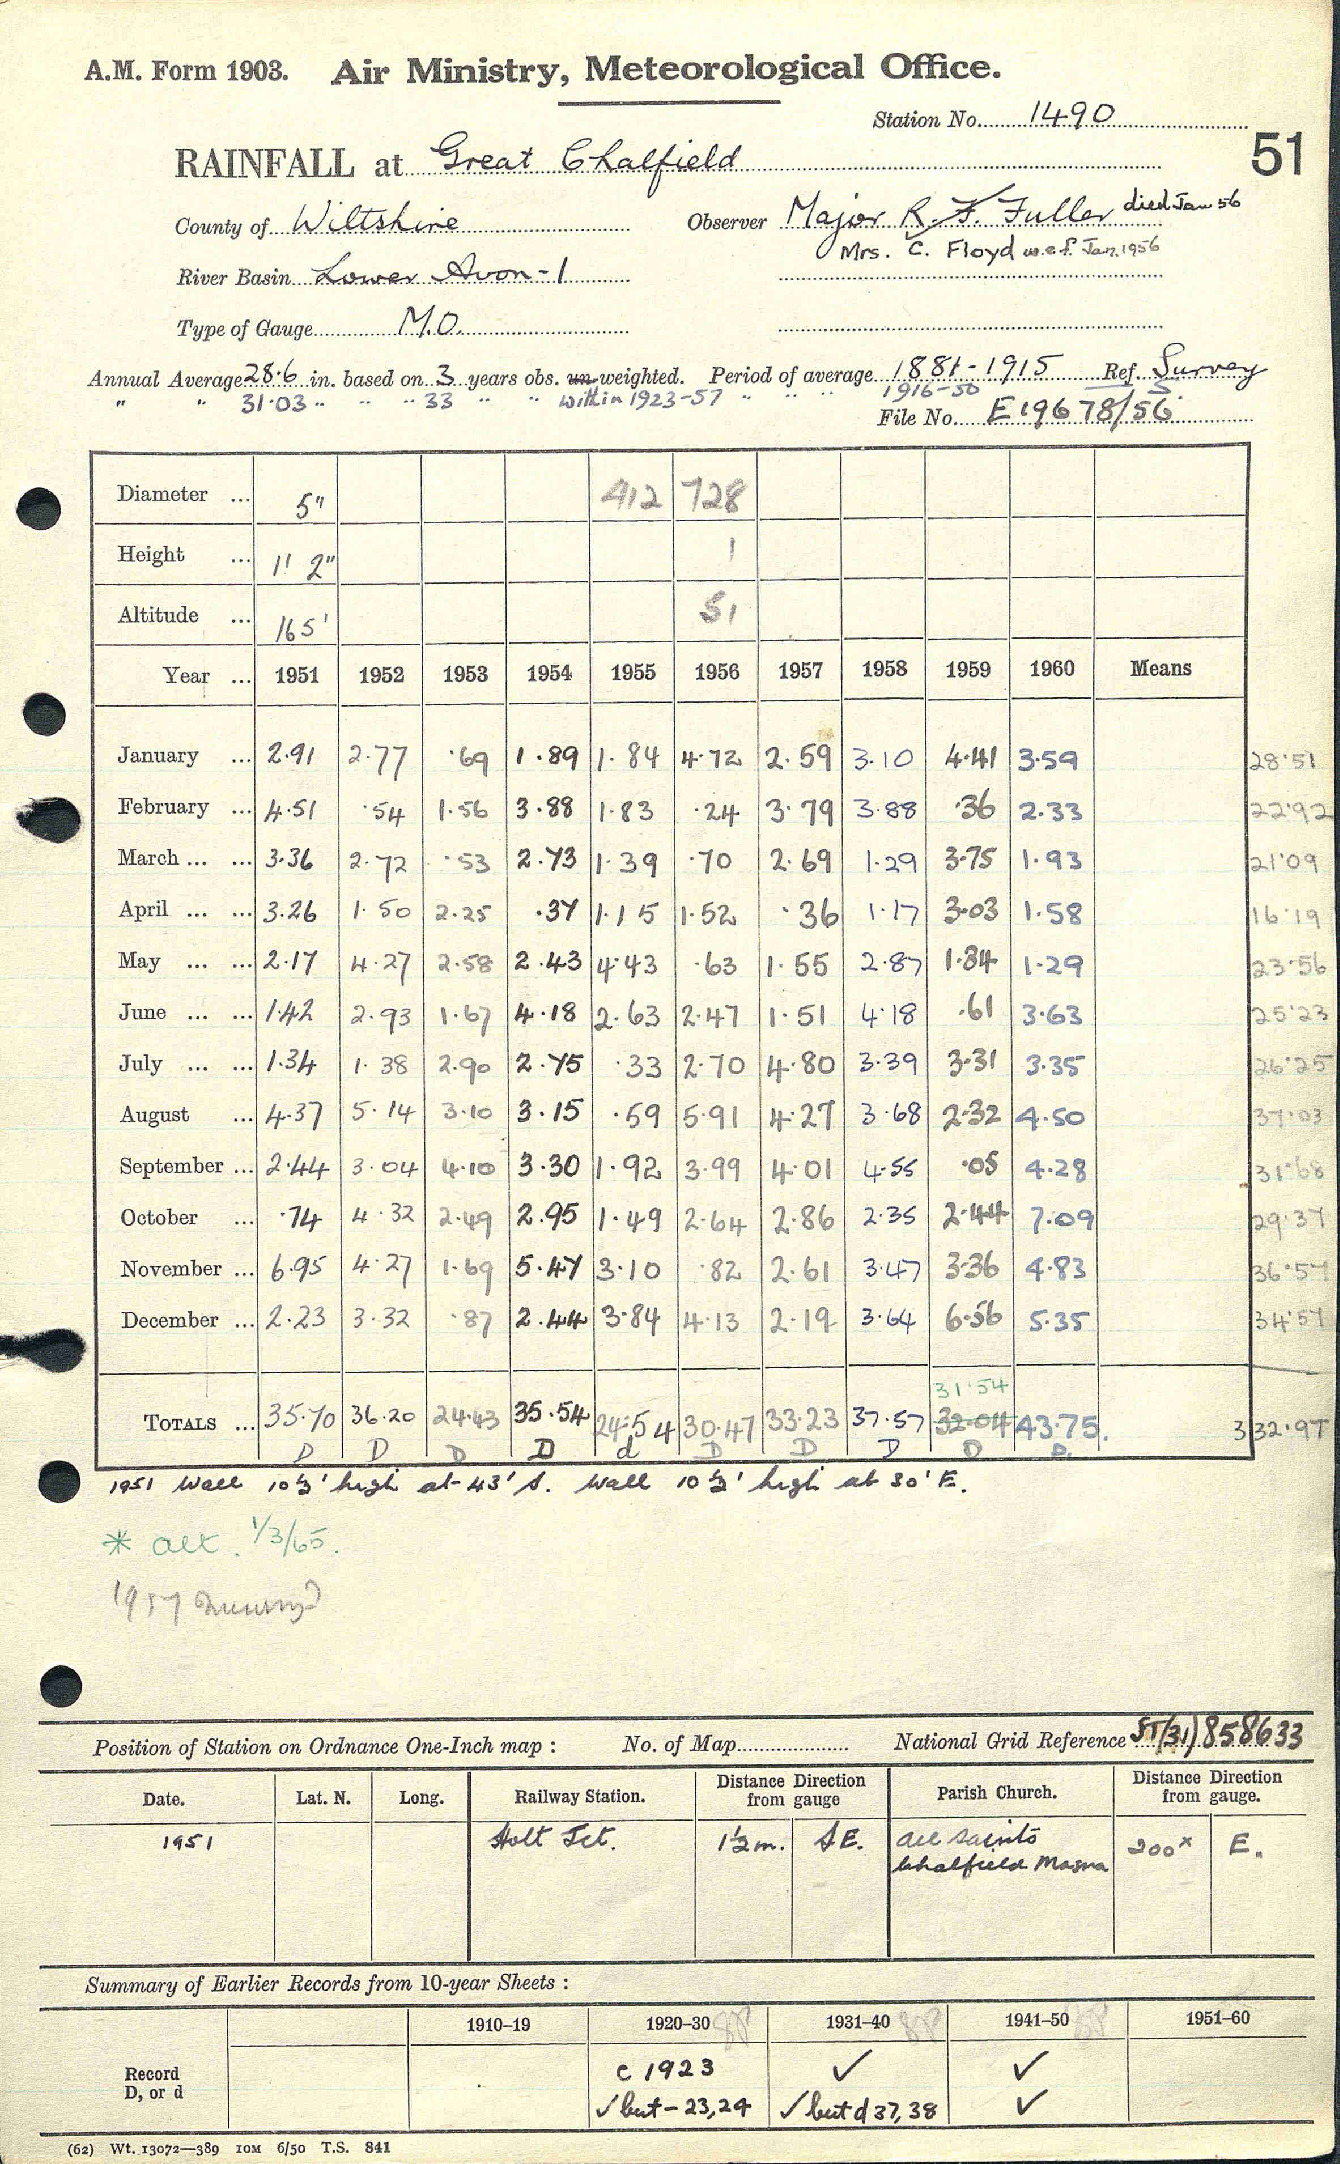 A.M. Form 1903. Air Ministry, Meteorological Office.
Station No. 1490
51
RAINFALL at Great Chalfield
County of Wiltshire Observer Major R. F. Fuller died Jan 56
Mrs. C. Floyd w.e.f. Jan. 1956
River Basin Lower Avon-1
Type of Gauge M.O.
Annual Average 28.6 in. based on 3 years obs. un-weighted. Period of average 1881-1915 Ref. Survey
" " 31.03 " " " 33 " " within 1923-57 " " " 1916-50 S.
File No. E19678/56
Diameter ... 5" 412 728
Height ... 1' 2" 1
Altitude ... 165' 51
Year ... 1951 1952 1953 1954 1955 1956 1957 1958 1959 1960 Means
January ... 2.91 2.77 .69 1.89 1.84 4.72 2.59 3.10 4.41 3.59 28.51
February ... 4.51 .54 1.56 3.88 1.83 .24 3.79 3.88 .36 2.33 22.92
March ... ... 3.36 2.72 .53 2.73 1.39 .70 2.69 1.29 3.75 1.93 21.09
April ... ... 3.26 1.50 2.25 .37 1.15 1.52 .36 1.17 3.03 1.58 16.19
May ... ... 2.17 4.27 2.58 2.43 4.43 .63 1.55 2.87 1.84 1.29 23.56
June ... ... 1.42 2.93 1.67 4.18 2.63 2.47 1.51 4.18 .61 3.63 25.23
July ... ... 1.34 1.38 2.90 2.75 .33 2.70 4.80 3.39 3.31 3.35 26.25
August ... 4.37 5.14 3.10 3.15 .59 5.91 4.27 3.68 2.32 4.50 37.03
September ... 2.44 3.04 4.10 3.30 1.92 3.99 4.01 4.55 .05 4.28 31.68
October ... .74 4.32 2.49 2.95 1.49 2.64 2.86 2.35 2.44 7.09 29.37
November ... 6.95 4.27 1.69 5.47 3.10 .82 2.61 3.47 3.36 4.83 36.57
December ... 2.23 3.32 .87 2.44 3.84 4.13 2.19 3.64 6.56 5.35 34.57
31.54
TOTALS ... 35.70 36.20 24.43 35.54 24.54 30.47 33.23 37.57 32.04 43.75. 332.97
D D D D d D D D D D.
1951 Wall 10½' high at 43' S. Wall 10½' high at 30' E.
* alt. 1/3/65.
1957
Position of Station on Ordnance One-Inch map : No. of Map National Grid Reference ST(31)858633
Date. Lat. N. Long. Railway Station. Distance Direction from gauge Parish Church. Distance Direction from gauge.
1951 Holt Jct. 1½m. SE. All Saints 200x E.
Chalfield Magna
Summary of Earlier Records from 10-year Sheets :
1910–19 1920–30 1931–40 1941–50 1951–60
Record c 1923 ✓ ✓
D, or d ✓ but – 23,24 ✓ but d 37,38 ✓
(62) Wt. 13072—389 10M 6/50 T.S. 841